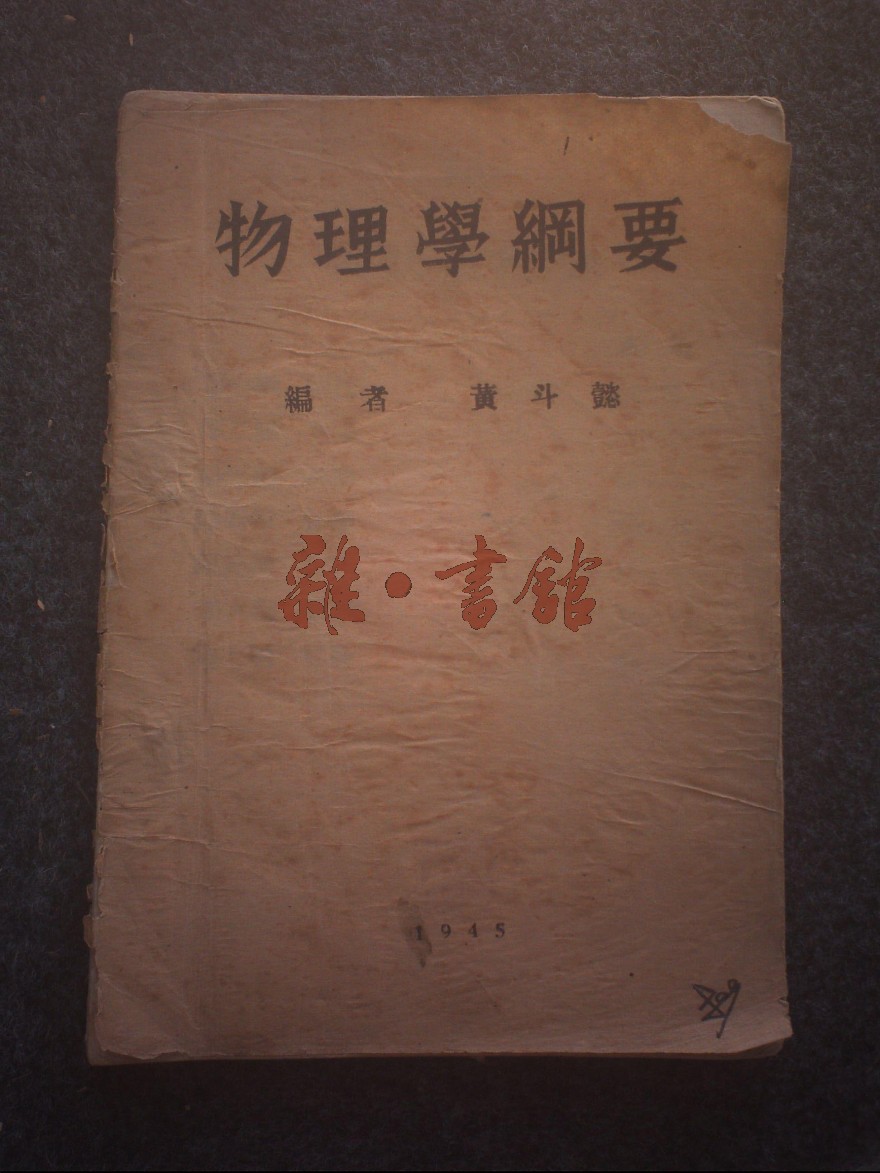 物理學綱要
編者 黃斗懿
雜·書館
1945